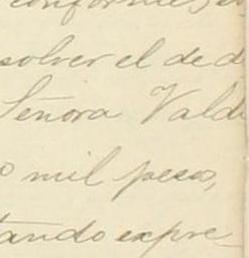 conforme, 
solver el de d
Señora Vald
o mil pesos,
tando expre_